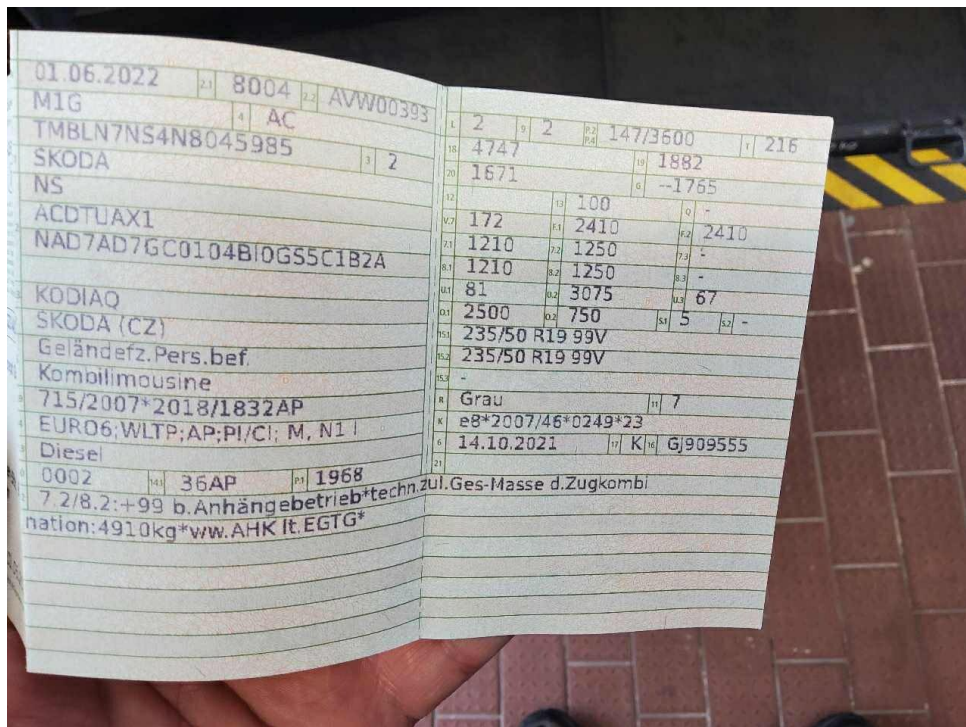 01.06.2022 2.1 8004 2.2 AVW00393
M1G 4 AC
TMBLN7NS4N8045985 3 2
SKODA
NS
ACDTUAX1
NAD7AD7GC0104BI0GS5C1B2A
KODIAQ
SKODA (CZ)
Geländefz.Pers.bef.
Kombilimousine
715/2007*2018/1832AP
EURO6;WLTP;AP;PI/CI; M, N1 I
Diesel
0002 14.1 36AP P.1 1968
L 2 9 2 P.2 P.4 147/3600 T 216
18 4747 19 1882
20 1671 G --1765
12 13 100 Q -
V.7 172 F.1 2410 F.2 2410
7.1 1210 7.2 1250 7.3 -
8.1 1210 8.2 1250 8.3 -
U.1 81 U.2 3075 U.3 67
O.1 2500 O.2 750 S.1 5 S.2 -
15.1 235/50 R19 99V
15.2 235/50 R19 99V
15.3 -
R Grau 11 7
K e8*2007/46*0249*23
6 14.10.2021 17 K 16 GJ909555
21
7.2/8.2:+99 b.Anhängebetrieb*techn.zul.Ges-Masse d.Zugkombi
nation:4910kg*ww.AHK lt.EGTG*